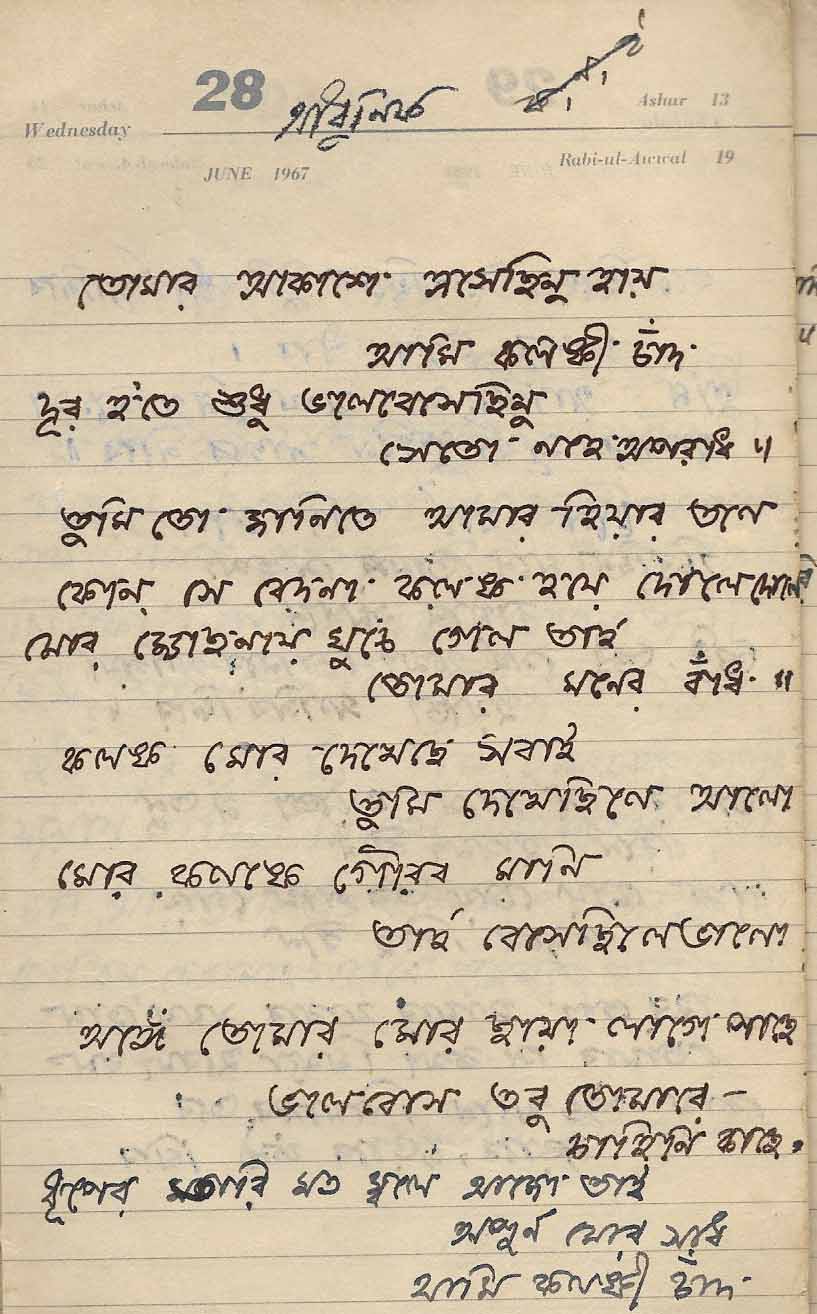 28
আধুনিক
Ashar 13
Wednesday
JUNE 1967
Rabi-ul-Awwal 19
তোমার আকাশে এসেছিনু হায়
আমি কলঙ্কী চাঁদ
দূর হ'তে শুধু ভালবেসেছিনু
সেতো নহে অপরাধ ॥
তুমি তো জানিতে আমার হিয়ার তলে
কোন্ সে বেদনা কলঙ্ক হয়ে দোলে
মোর জোছনায় মুছে গেল তাই
তোমার মনের বাঁধ ॥
কলঙ্ক মোর দেখেছে সবাই
তুমি দেখেছিলে আলো
মোর কলঙ্কে গৌরব মানি
তাই বেসেছিলে ভালো
অঙ্গে তোমার মোর ছায়া লাগে পাছে
ভালবেসে তবু তোমারে –
চাহিনি কাছে,
ধূপের মত জ্বলে আজো তাই
অপূর্ণ মোর সাধ
আমি কলঙ্কী চাঁদ